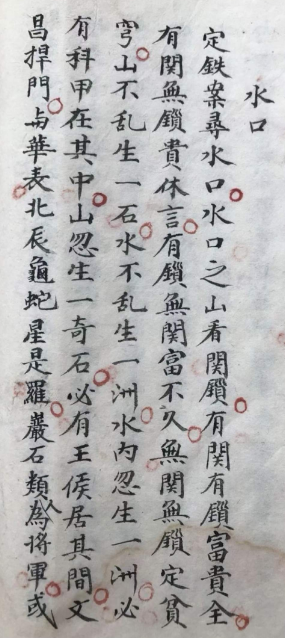 水口
定鉄案尋水口水口之山看関鎖有関有鎖富貴全
有関無鎖貴休言有鎖無関富不久無関無鎖定貧
穹山不乱生一石水不乱生一洲水内忽生一洲必
有科甲在其中山忽生一奇石必有王侯居其間文
昌捍門与華表北辰龜蛇星是羅巖石類人為将軍或